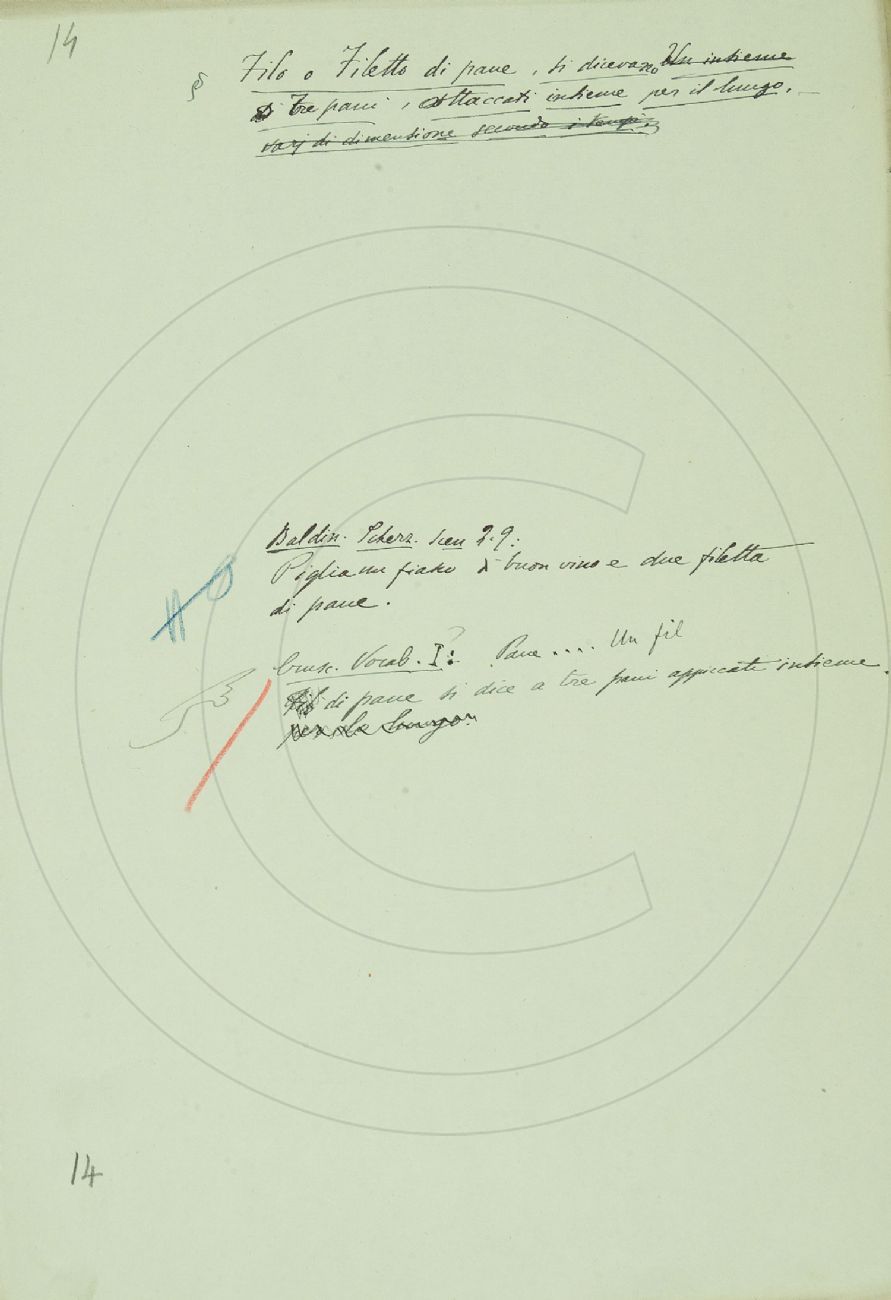 14
§ Filo o Filetto di pane, si dicevano Un insieme
di Tre pani, attaccati insieme per il lungo.
varj di dimensione secondo i tempi.
Baldin. Scherz. scen 2.9:
Piglia un fiasco di buon vino e due filetta
di pane.
Crusc. Vocab. I: Pane .... Un fil
di pane si dice a tre pani appiccati insieme.
per lo lungo.
14